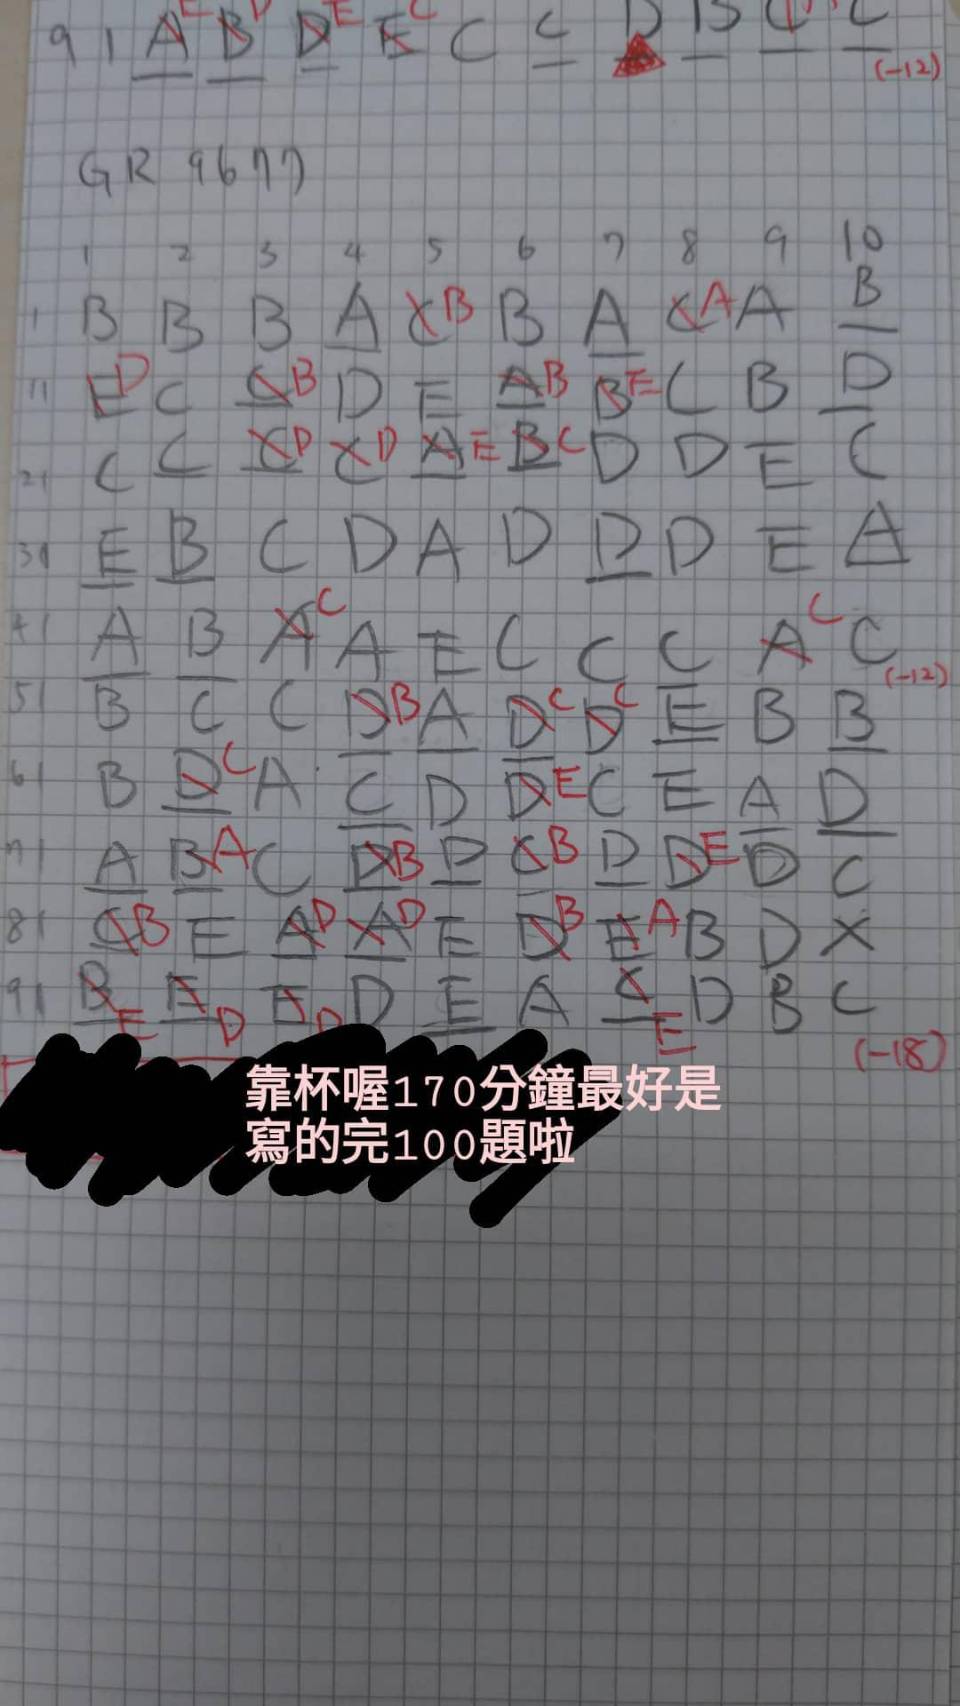 91 A E B D D E E C C C D B C C
(-12)
GR 9677
1 2 3 4 5 6 7 8 9 10
1 B B B A C B B A C A A B
11 E D C C B D E A B B E C B D
21 C C C D C D A E B C D D E C
31 E B C D A D D D E A
41 A B A C A E C C C A C C
(-12)
51 B C C D B A D C D C E B B
61 B D C A C D D E C E A D
71 A B A C D B D C B D D E D C
81 C B E A D A D E D B E A B D X
91 B E E D E D D E A C E D B C
(-18)
靠杯喔170分鐘最好是
寫的完100題啦